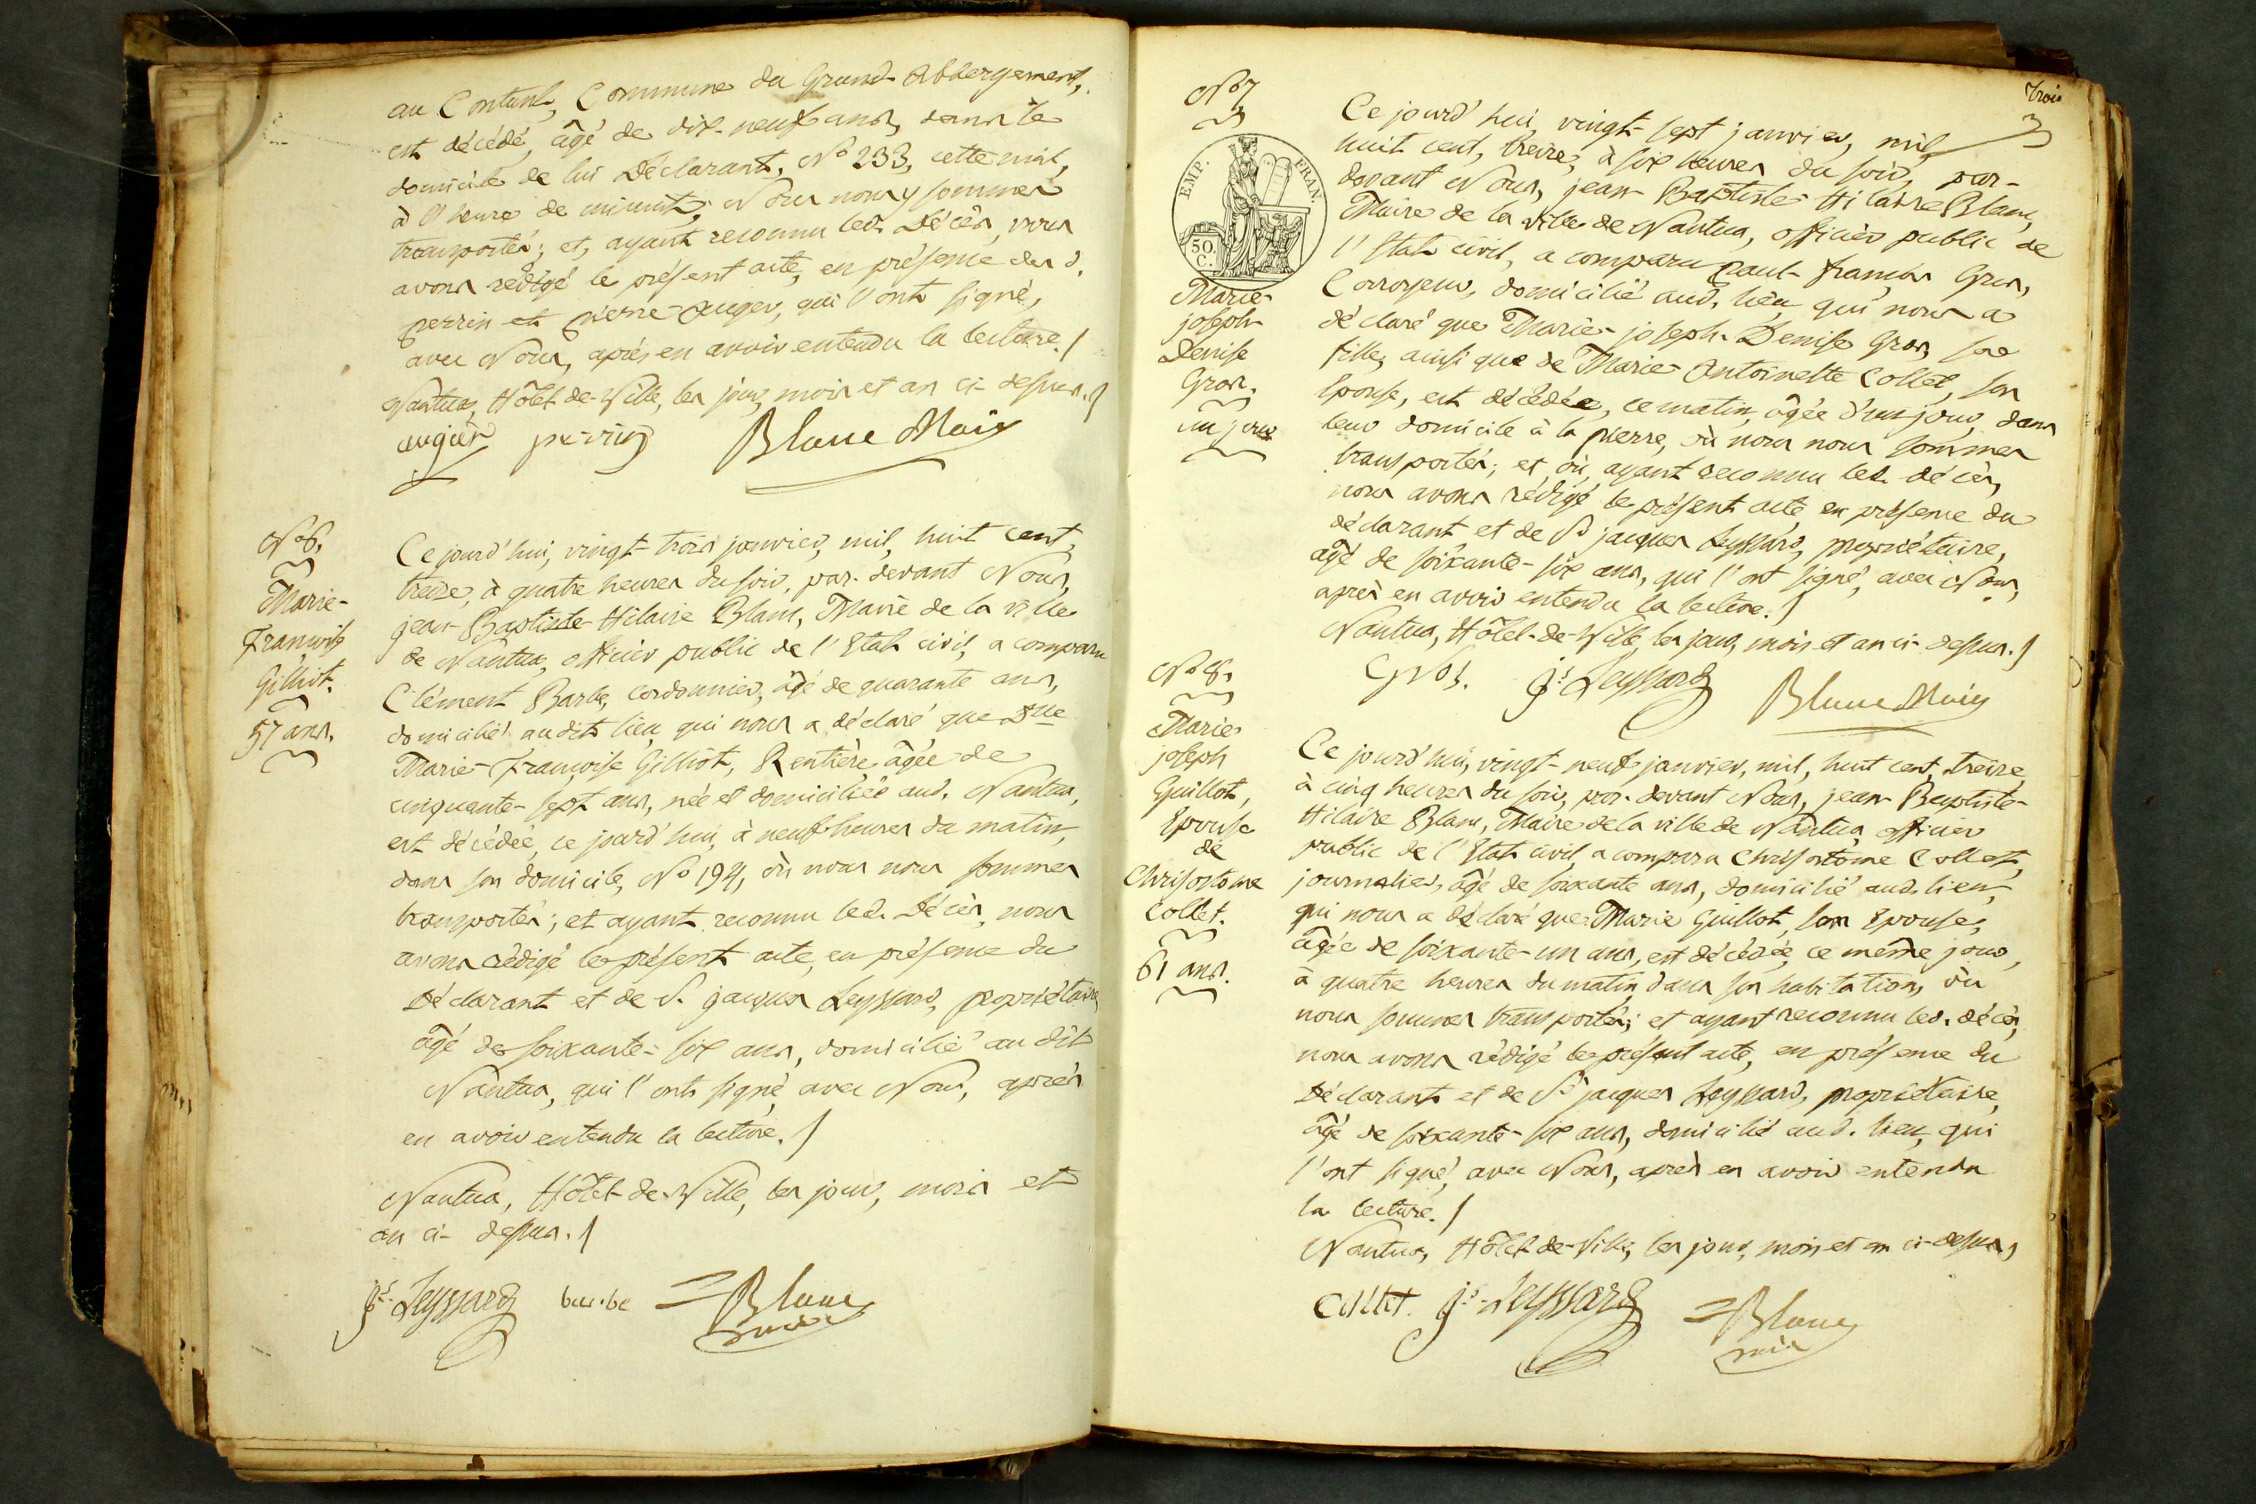 au Contant, Commune du Grand-Abbergement,
est décédé, âgé de dix-neuf ans, dans le
domicile de lui Déclarant, No 233, cette nuit,
à l'heure de minuit; Nous nous y sommes
transportés; et, ayant reconnu led. Décès, nous
avons rédigé le présent acte, en présence des d.
perrin et pierre auger, qui l'ont signé,
avec Nous, après en avoir entendu la lecture./
Nantua, Hôtel-de-Ville, les jour, mois et an ci-dessus./
augier perrin Blanc Maire
No 6.
Marie-
Françoise
Gilliot.
57 ans.
Ce jourd'hui, vingt-trois janvier, mil, huit cent,
treize, à quatre heures du soir, par-devant Nous,
jean-Baptiste-Hilaire Blanc, Maire de la ville
de Nantua, officier public de l'Etat civil, a comparu
Clément Barbe, cordonnier, âgé de quarante ans,
domicilié audit lieu, qui nous a déclaré que Dlle
Marie-Françoise Gilliot, Rentière, âgée de
cinquante-sept ans, née et domiciliée aud. Nantua,
est décédée, ce jourd'hui, à neuf heures du matin,
dans son domicile, No 194, où nous nous sommes
transportés; et ayant reconnu led. Décès, nous
avons rédigé le présent acte, en présence du
Déclarant et de S. jacques Leyssard, propriétaire,
âgé de soixante-six ans, domicilié au dit
Nantua, qui l'ont signé, avec Nous, après
en avoir entendu la lecture./
Nantua, Hôtel-de-Ville, les jour, mois et
an ci-dessus./
js Leyssard barbe Blanc
maire
trois
3
No 7
EMP. FRAN.
50
C.
Marie-
joseph-
Denise
Gros.
un jour
Ce jourd'hui vingt-sept janvier, mil
huit cent, treize, à six heures du soir, par-
devant Nous, jean-Baptiste-Hilaire Blanc,
Maire de la ville de Nantua, officier public de
l'Etat civil, a comparu paul-françois Gros,
Corroyeur, domicilié aud. lieu, qui nous a
déclaré que Marie-joseph-Denise Gros, sa
fille, ainsi que de Marie-Antoinette Collet, son
Epouse, est décédée, ce matin, âgée d'un jour, dans
leur domicile à la pierre, où nous nous sommes
transportés; et où, ayant reconnu led. décès,
nous avons rédigé le présent acte en présence du
déclarant et de Sr jacques Leyssard, propriétaire,
âgé de soixante-six ans, qui l'ont signé, avec Nous,
après en avoir entendu la lecture./
Nantua, Hôtel-de-Ville, les jour, mois et an ci-dessus./
Gros. js Leyssard Blanc Maire
No 8.
Marie
joseph
Guillot,
Epouse
de
Chrisostome
Collet.
61 ans.
Ce jourd'hui, vingt-neuf janvier, mil, huit cent, treize,
à cinq heures du soir, par-devant Nous, jean-Baptiste-
Hilaire Blanc, Maire de la ville de Nantua, officier
public de l'Etat civil, a comparu Chrisostome Collet,
journalier, âgé de soixante ans, domicilié aud. lieu,
qui nous a déclaré que Marie Guillot, son Epouse,
âgée de soixante-un ans, est décédée, ce même jour,
à quatre heures du matin, dans son habitation, où
nous sommes transportés; et ayant reconnu led. décès,
nous avons rédigé le présent acte, en présence du
Déclarant et de Sr jacques Leyssard, propriétaire,
âgé de soixante-six ans, domicilié aud. lieu, qui
l'ont signé, avec Nous, après en avoir entendu
la lecture./
Nantua, Hôtel-de-Ville, les jour, mois et an ci-dessus,
Collet. js Leyssard Blanc
maire